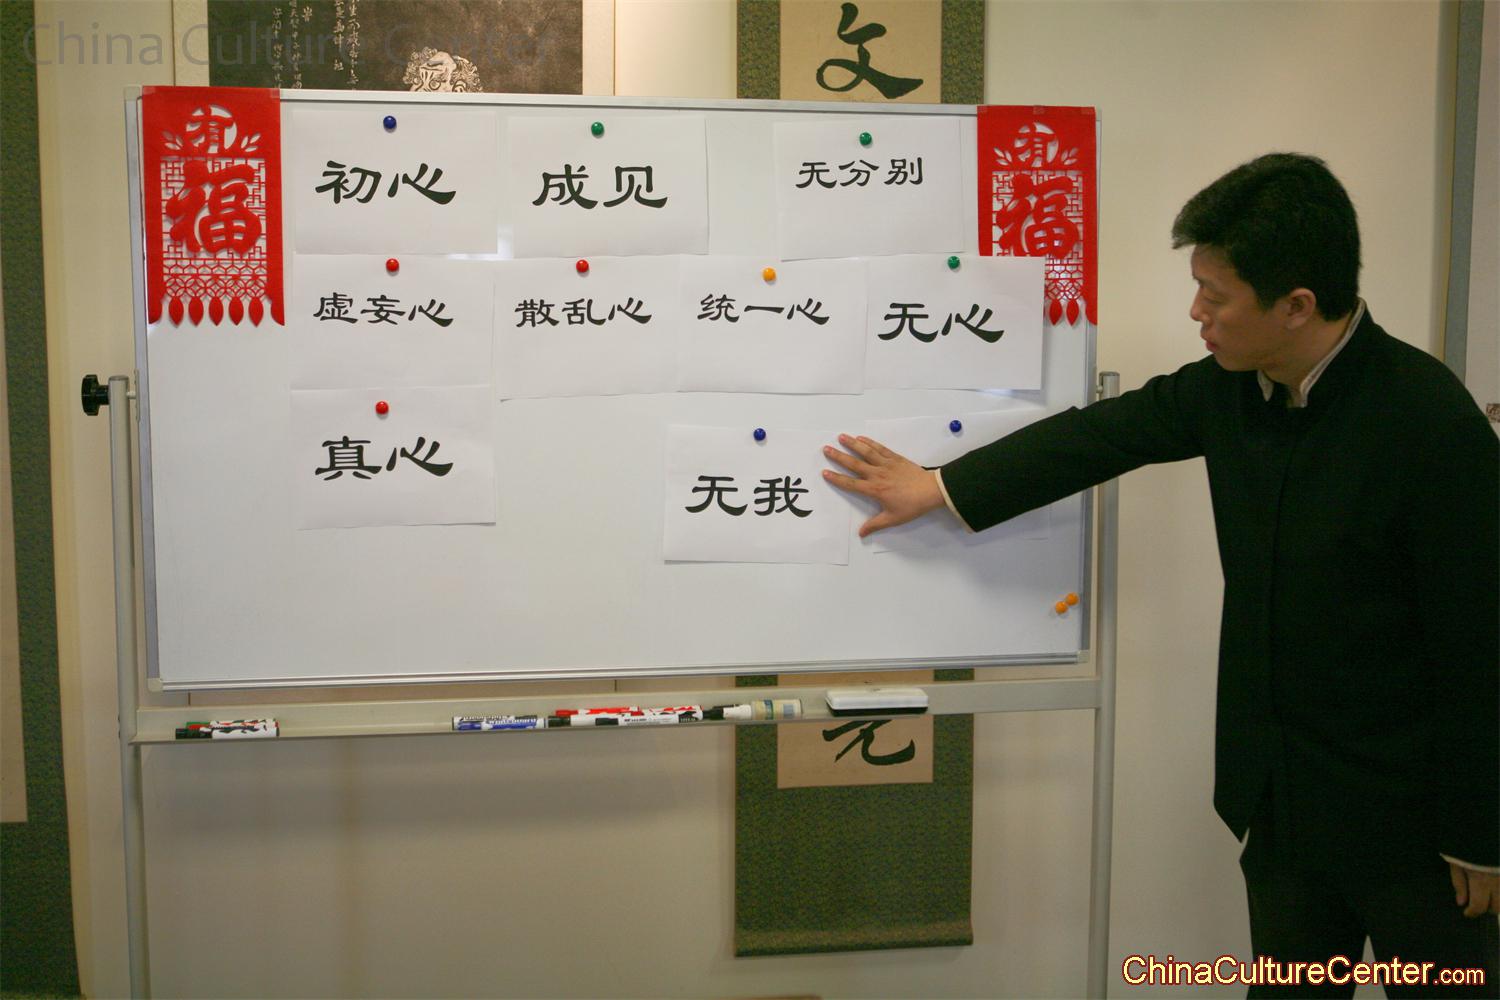 China Culture Center
文
有
福
初心
成见
无分别
有
福
虚妄心
散乱心
统一心
无心
真心
无我
ChinaCultureCenter.com